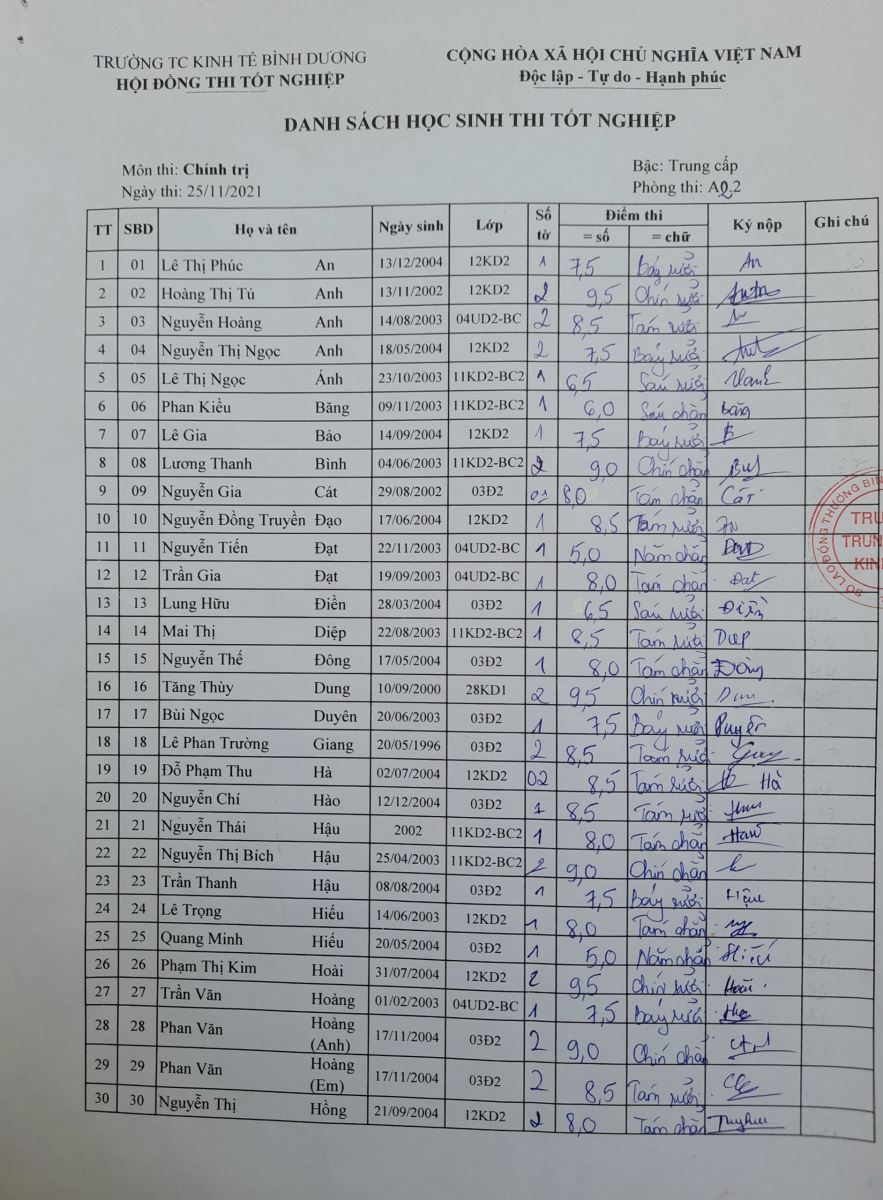 TRƯỜNG TC KINH TẾ BÌNH DƯƠNG
HỘI ĐỒNG THI TỐT NGHIỆP
CỘNG HÒA XÃ HỘI CHỦ NGHĨA VIỆT NAM
Độc lập - Tự do - Hạnh phúc
DANH SÁCH HỌC SINH THI TỐT NGHIỆP
Môn thi: Chính trị
Ngày thi: 25/11/2021
Bậc: Trung cấp
Phòng thi: A2.2
TT SBD Họ và tên Ngày sinh Lớp Số tờ Điểm thi Ký nộp Ghi chú
= số = chữ
1 01 Lê Thị Phúc An 13/12/2004 12KD2 1 7,5 Bảy rưỡi An
2 02 Hoàng Thị Tú Anh 13/11/2002 12KD2 2 9,5 Chín rưỡi
3 03 Nguyễn Hoàng Anh 14/08/2003 04UD2-BC 2 8,5 Tám rưỡi
4 04 Nguyễn Thị Ngọc Anh 18/05/2004 12KD2 2 7,5 Bảy rưỡi
5 05 Lê Thị Ngọc Ánh 23/10/2003 11KD2-BC2 1 6,5 Sáu rưỡi
6 06 Phan Kiều Băng 09/11/2003 11KD2-BC2 1 6,0 Sáu chẵn Băng
7 07 Lê Gia Bảo 14/09/2004 12KD2 1 7,5 Bảy rưỡi B
8 08 Lương Thanh Bình 04/06/2003 11KD2-BC2 2 9,0 Chín chẵn
9 09 Nguyễn Gia Cát 29/08/2002 03Đ2 01 8,0 Tám chẵn Cát
10 10 Nguyễn Đồng Truyền Đạo 17/06/2004 12KD2 1 8,5 Tám rưỡi
11 11 Nguyễn Tiến Đạt 22/11/2003 04UD2-BC 1 5,0 Năm chẵn
12 12 Trần Gia Đạt 19/09/2003 04UD2-BC 1 8,0 Tám chẵn Đat
13 13 Lung Hữu Điền 28/03/2004 03Đ2 1 6,5 Sáu rưỡi Điền
14 14 Mai Thị Diệp 22/08/2003 11KD2-BC2 1 8,5 Tám rưỡi Diep
15 15 Nguyễn Thế Đông 17/05/2004 03Đ2 1 8,0 Tám chẵn Đông
16 16 Tăng Thùy Dung 10/09/2000 28KD1 2 9,5 Chín rưỡi
17 17 Bùi Ngọc Duyên 20/06/2003 03Đ2 1 7,5 Bảy rưỡi Duyên
18 18 Lê Phan Trường Giang 20/05/1996 03Đ2 2 8,5 Tám rưỡi
19 19 Đỗ Phạm Thu Hà 02/07/2004 12KD2 02 8,5 Tám rưỡi Hà
20 20 Nguyễn Chí Hào 12/12/2004 03Đ2 1 8,5 Tám rưỡi
21 21 Nguyễn Thái Hậu 2002 11KD2-BC2 1 8,0 Tám chẵn
22 22 Nguyễn Thị Bích Hậu 25/04/2003 11KD2-BC2 2 9,0 Chín chẵn
23 23 Trần Thanh Hậu 08/08/2004 03Đ2 1 7,5 Bảy rưỡi
24 24 Lê Trọng Hiếu 14/06/2003 12KD2 1 8,0 Tám chẵn
25 25 Quang Minh Hiếu 20/05/2004 03Đ2 1 5,0 Năm chẵn Hiếu
26 26 Phạm Thị Kim Hoài 31/07/2004 12KD2 2 9,5 Chín rưỡi Hoài
27 27 Trần Văn Hoàng 01/02/2003 04UD2-BC 1 7,5 Bảy rưỡi
28 28 Phan Văn Hoàng (Anh) 17/11/2004 03Đ2 2 9,0 Chín chẵn
29 29 Phan Văn Hoàng (Em) 17/11/2004 03Đ2 2 8,5 Tám rưỡi
30 30 Nguyễn Thị Hồng 21/09/2004 12KD2 2 8,0 Tám chẵn
SỞ LAO ĐỘNG THƯƠNG BIN
TRƯ
TRUNG
KINH